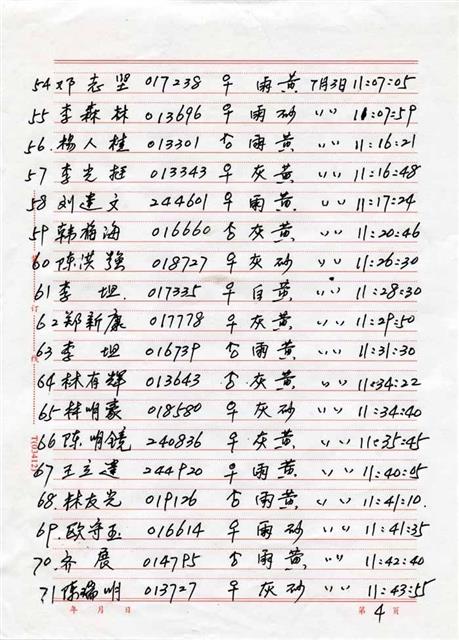 54 邓志坚 017238 早 雨黄 7月3日 11:07:05
55 李森林 013696 早 雨砂 〃 11:07:59
56. 杨人桂 013301 合 雨黄 〃 11:16:21
57 李光挺 013343 早 灰黄 〃 11:16:48
58 刘建文 244601 早 雨黄 〃 11:17:24
59 韩梅海 016660 合 灰黄 〃 11:20:46
60 陈洪强 018727 早 灰砂 〃 11:26:30
61 李坦. 017335 早 白黄 〃 11:28:30
62 郑新康 017778 早 灰黄 〃 11:29:50
63 李坦 016739 合 雨黄 〃 11:31:30
64 林有辉 013643 合 灰黄 〃 11:34:22
65 林明豪 018580 早 灰砂 〃 11:34:40
66 陈明镜 240836 早 灰黄 〃 11:35:45
67 王立建 244920 早 雨黄 〃 11:40:05
68. 林友光 019126 合 雨黄 〃 11:41:10.
69. 欧守玉 016614 早 雨砂 〃 11:41:35
70. 齐展 014795 合 雨黄 〃 11:42:40
71 陈瑞明 013727 早 灰砂 〃 11:43:55
年 月 日 第 4 页